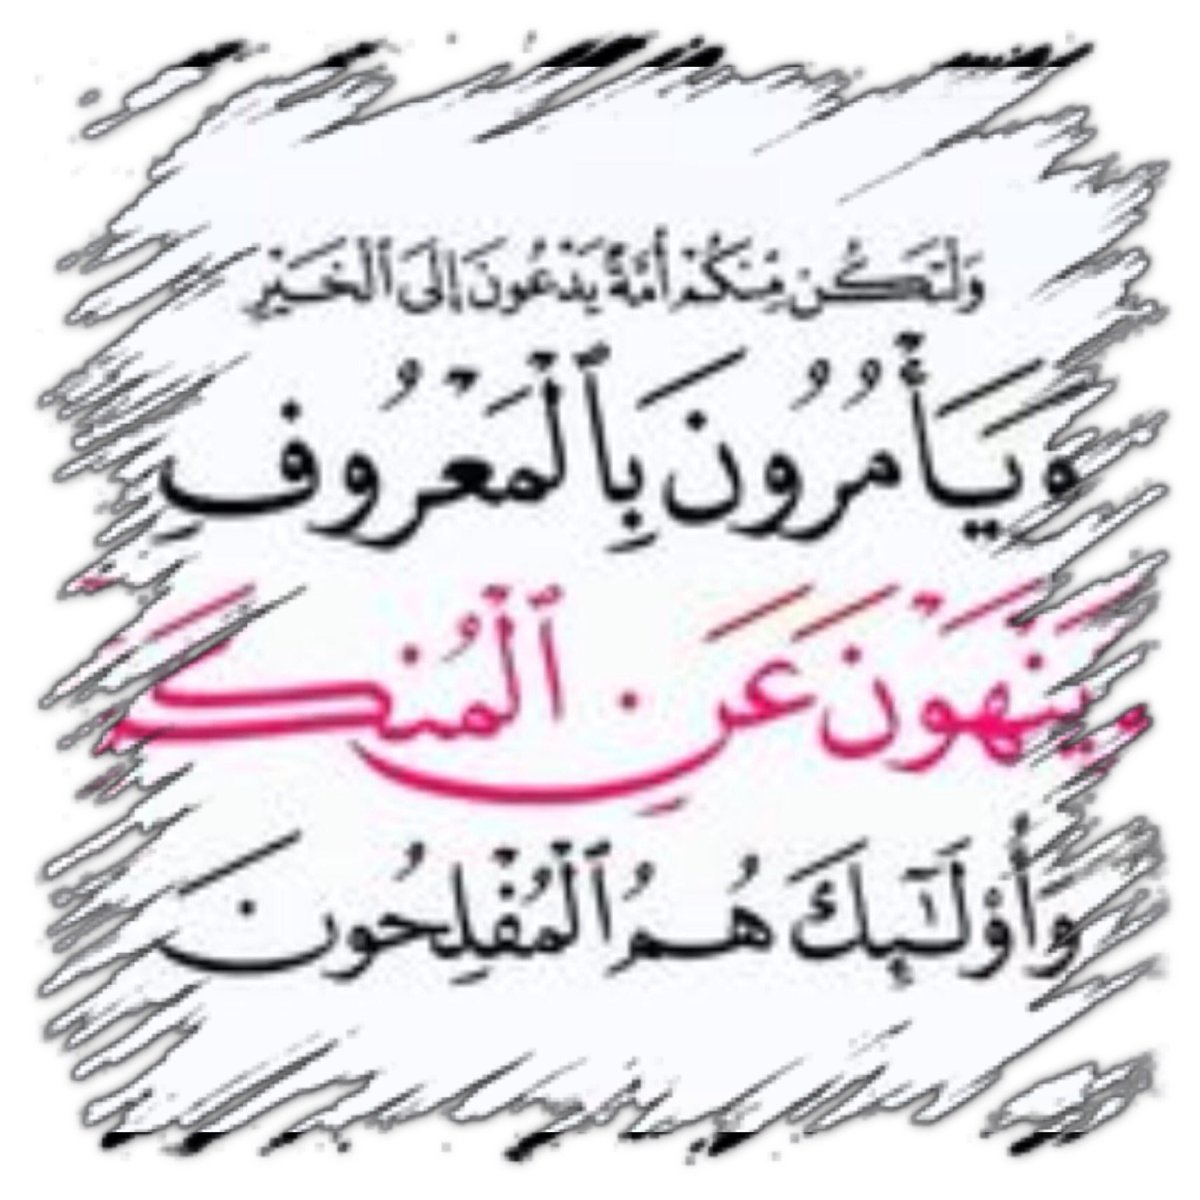 وَلْتَكُن مِّنكُمْ أُمَّةٌ يَدْعُونَ إِلَى ٱلْخَيْرِ
وَيَأْمُرُونَ بِٱلْمَعْرُوفِ
يَنْهَوْنَ عَنِ ٱلْمُنكَ
وَأُو۟لَـٰٓئِكَ هُمُ ٱلْمُفْلِحُونَ